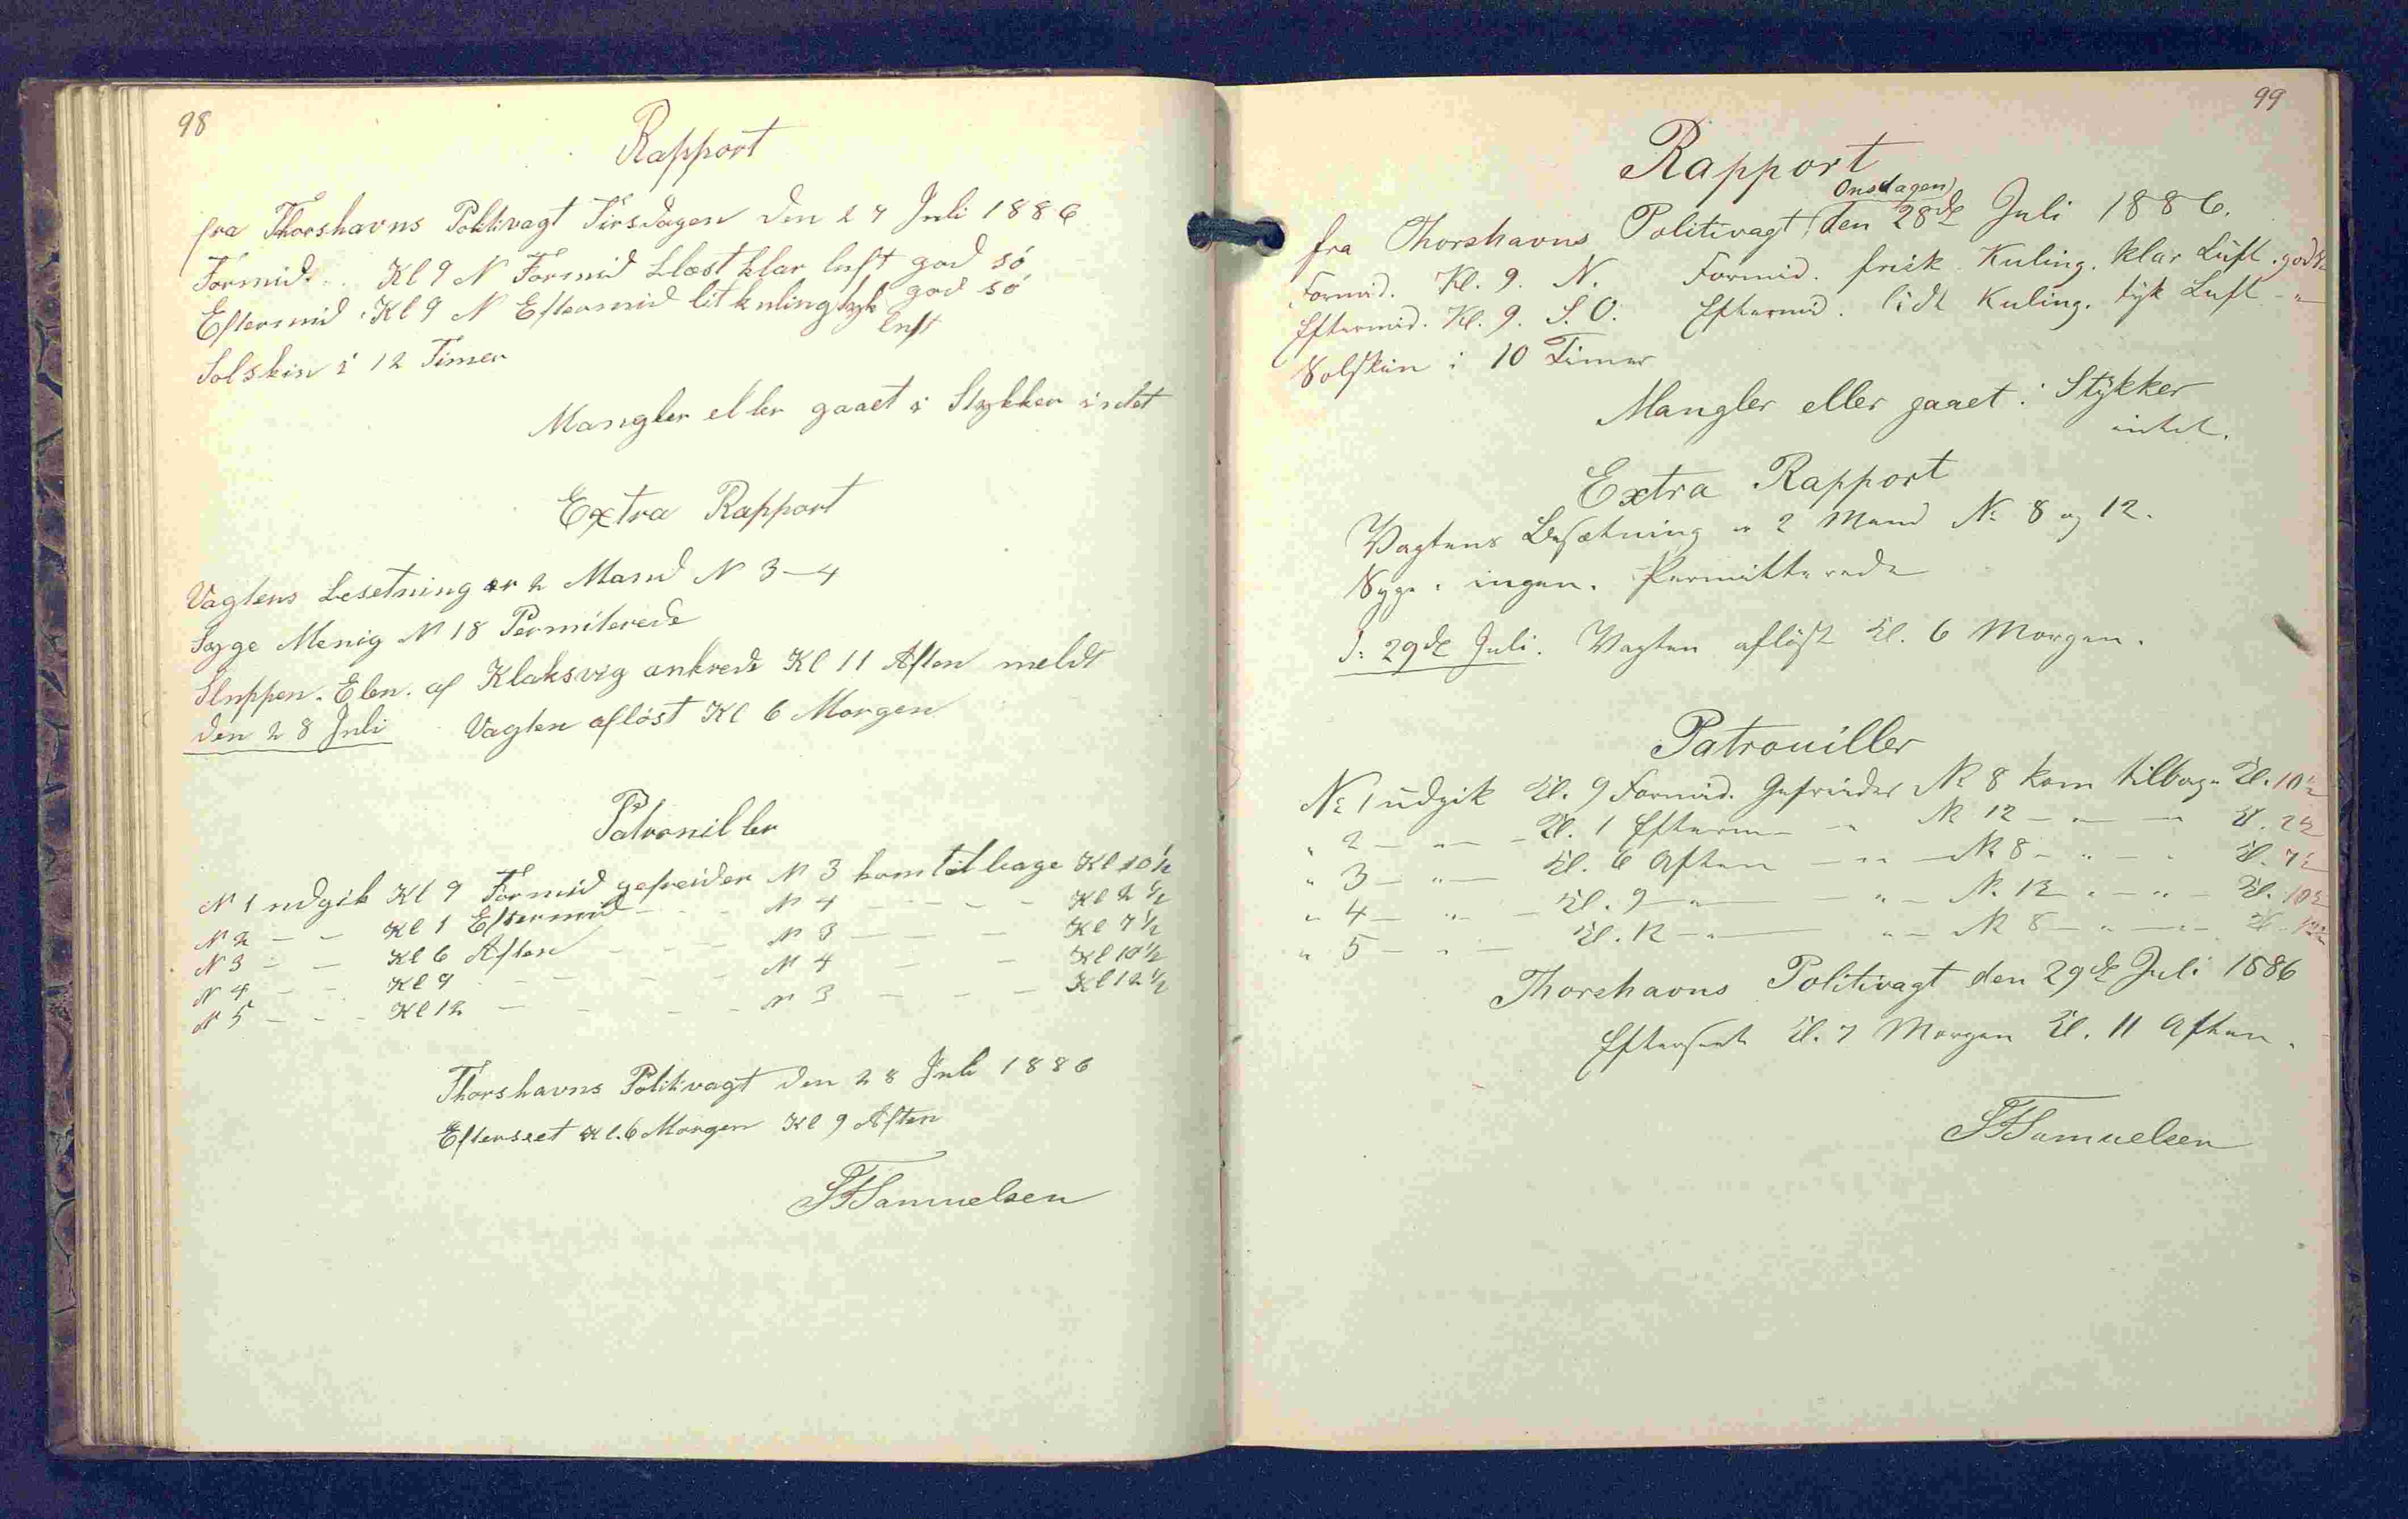 98
Rapport
fra Thorshavns Politivagt Tirsdagen den 27 Juli 1886
Formid. Kl 9 N Formid blæst klar luft god sö
Eftermid. Kl 9 N Eftermid lit kuling tyk luft god sö
Solskin i 12 Timer
Mangler eller gaaet i Stykker intet
Extra Rapport
Vagtens besetning er 2 Mand N 3–4
Syge Menig N 18 Permiterede
Sluppen. Elen. af Klaksvig ankrede Kl 11 Aften meldt
den 28 Juli Vagten aflöst Kl 6 Morgen
Patroniller
N 1 udgik Kl 9 Formid gefreider N 3 kom tilbage Kl 10½
N 2 – – Kl 1 Eftermid – – – N 4 – – – – Kl 2½
N 3 – – Kl 6 Aften – – – N 3 – – – Kl 7½
N 4 – – Kl 9 – – – – N 4 – – Kl 10½
N 5 – – – Kl 12 – – – – N 3 – – – Kl 12½
Thorshavns Politivagt den 28 Juli 1886
Efterseet Kl. 6 Morgen Kl 9 Aften
Samuelsen
99
Rapport
fra Thorshavns Politivagt Onsdagen den 28de Juli 1886.
Formid. Kl. 9. N. Formid. frisk Kuling. klar Luft. god
Eftermid. Kl. 9. S.O. Eftermid. lidt Kuling. tyk Luft – "
Solskin i 10 Timer
Mangler eller gaaet i Stykker
intet.
Extra Rapport
Vagtens Besætning er 2 Mand No 8 og 12.
Syge: ingen. Permitterede
D: 29de Juli. Vagten aflöst Kl. 6 Morgen.
Patrouiller
No 1 udgik Kl. 9 Formid. Gefreider No 8 kom tilbage Kl. 10½
" 2 – " – Kl. 1 Efterm – " No 12 – " – " Kl. 2½
" 3 – " – Kl. 6 Aften – " – No 8 – " – " Kl. 7½
" 4 – " – Kl. 9 – " – " – No 12 " – " – Kl. 10½
" 5 – " – Kl. 12 – " – " – No 8 – " – " – Kl.
Thorshavns Politivagt den 29de Juli 1886
Efterseet Kl. 7 Morgen Kl. 11 Aften.
Samuelsen